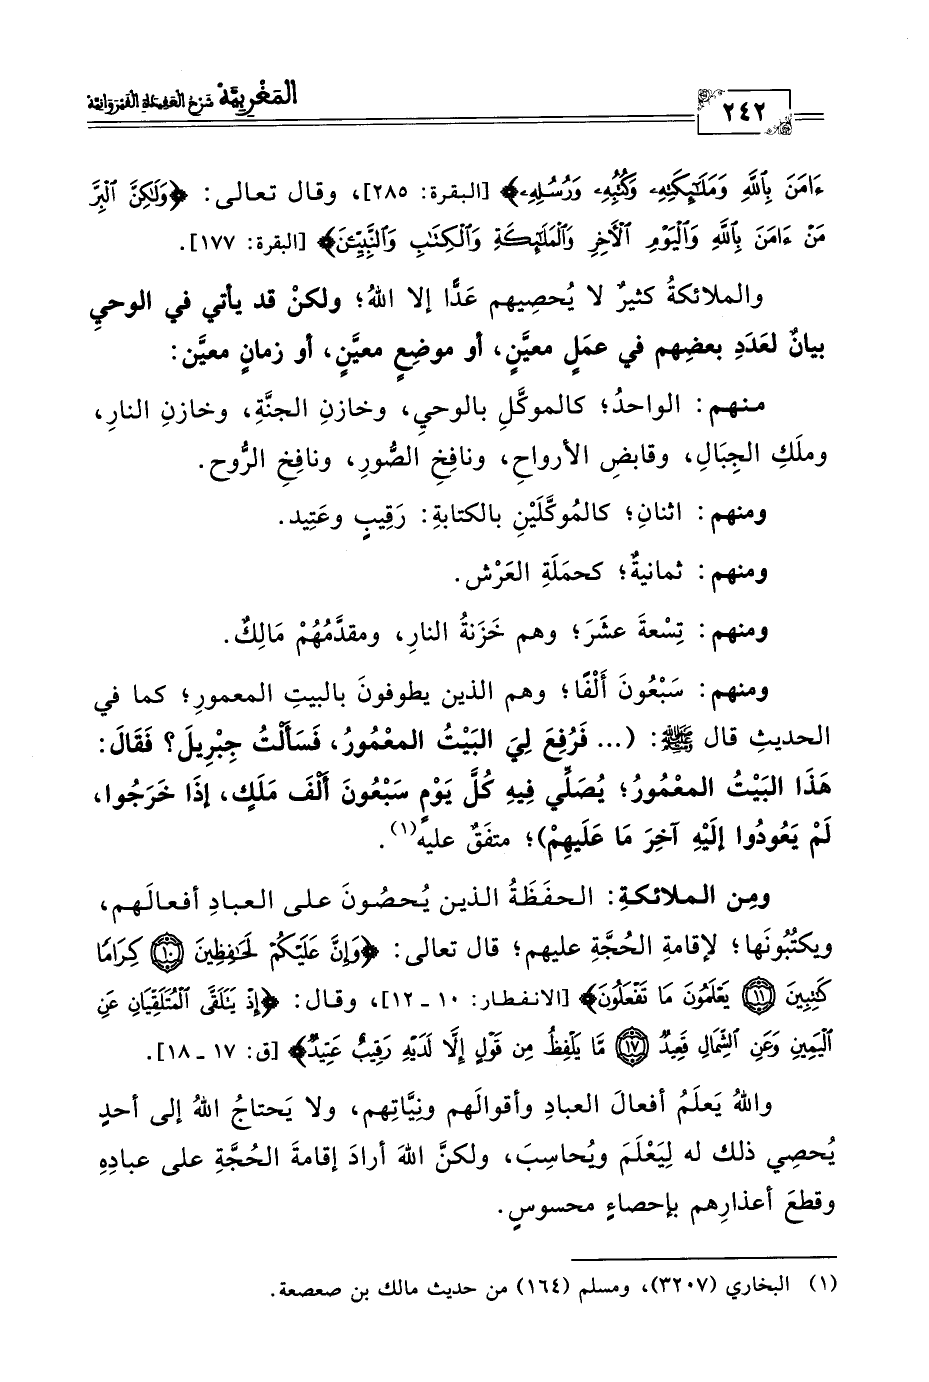 ٢٤٢ المَغْرِبِيَّة شَرْحُ العَقِيدَةِ القَيْرَوَانِيَّة
ءَامَنَ بِٱللَّهِ وَمَلَٰٓئِكَتِهِۦ وَكُتُبِهِۦ وَرُسُلِهِۦ﴾ [البقرة: ٢٨٥]، وقال تعالى: ﴿وَلَٰكِنَّ ٱلْبِرَّ
مَنْ ءَامَنَ بِٱللَّهِ وَٱلْيَوْمِ ٱلْءَاخِرِ وَٱلْمَلَٰٓئِكَةِ وَٱلْكِتَٰبِ وَٱلنَّبِيِّـۧنَ﴾ [البقرة: ١٧٧].
والملائكةُ كثيرٌ لا يُحصِيهم عَدًّا إلا اللهُ؛ ولكنْ قد يأتي في الوحيِ
بيانٌ لعَدَدِ بعضِهم في عمَلٍ معيَّنٍ، أو موضِعٍ معيَّنٍ، أو زمانٍ معيَّن:
منهم: الواحدُ؛ كالموكَّلِ بالوحيِ، وخازنِ الجنَّةِ، وخازنِ النارِ،
وملَكِ الجِبَالِ، وقابضِ الأرواحِ، ونافِخِ الصُّورِ، ونافِخِ الرُّوح.
ومنهم: اثنانِ؛ كالمُوكَّلَيْنِ بالكتابةِ: رَقِيبٍ وعَتِيد.
ومنهم: ثمانيةٌ؛ كحمَلَةِ العَرْش.
ومنهم: تِسْعةَ عشَرَ؛ وهم خَزَنةُ النارِ، ومقدَّمُهُمْ مَالِكٌ.
ومنهم: سَبْعُونَ أَلْفًا؛ وهم الذين يطوفونَ بالبيتِ المعمورِ؛ كما في
الحديثِ قال ﷺ: (... فَرُفِعَ لِيَ البَيْتُ المعْمُورُ، فَسَأَلْتُ جِبْرِيلَ؟ فَقَالَ:
هَذَا البَيْتُ المعْمُورُ؛ يُصَلِّي فِيهِ كُلَّ يَوْمٍ سَبْعُونَ أَلْفَ مَلَكٍ، إِذَا خَرَجُوا،
لَمْ يَعُودُوا إِلَيْهِ آخِرَ مَا عَلَيهِمْ)؛ متفَقٌ عليه(١).
ومِن الملائكةِ: الحفَظَةُ الذين يُحصُونَ على العبادِ أفعالَهم،
ويكتُبُونَها؛ لإقامةِ الحُجَّةِ عليهم؛ قال تعالى: ﴿وَإِنَّ عَلَيْكُمْ لَحَٰفِظِينَ ١٠ كِرَامًا
كَٰتِبِينَ ١١ يَعْلَمُونَ مَا تَفْعَلُونَ﴾ [الانفطار: ١٠ ـ ١٢]، وقال: ﴿إِذْ يَتَلَقَّى ٱلْمُتَلَقِّيَانِ عَنِ
ٱلْيَمِينِ وَعَنِ ٱلشِّمَالِ قَعِيدٌ ١٧ مَّا يَلْفِظُ مِن قَوْلٍ إِلَّا لَدَيْهِ رَقِيبٌ عَتِيدٌ﴾ [ق: ١٧ ـ ١٨].
واللهُ يَعلَمُ أفعالَ العبادِ وأقوالَهم ونِيَّاتِهم، ولا يَحتاجُ اللهُ إلى أحدٍ
يُحصِي ذلك له لِيَعْلَمَ ويُحاسِبَ، ولكنَّ اللهَ أرادَ إقامةَ الحُجَّةِ على عبادِهِ
وقطعَ أعذارِهم بإحصاءٍ محسوسٍ.
(١) البخاري (٣٢٠٧)، ومسلم (١٦٤) من حديث مالك بن صعصعة.